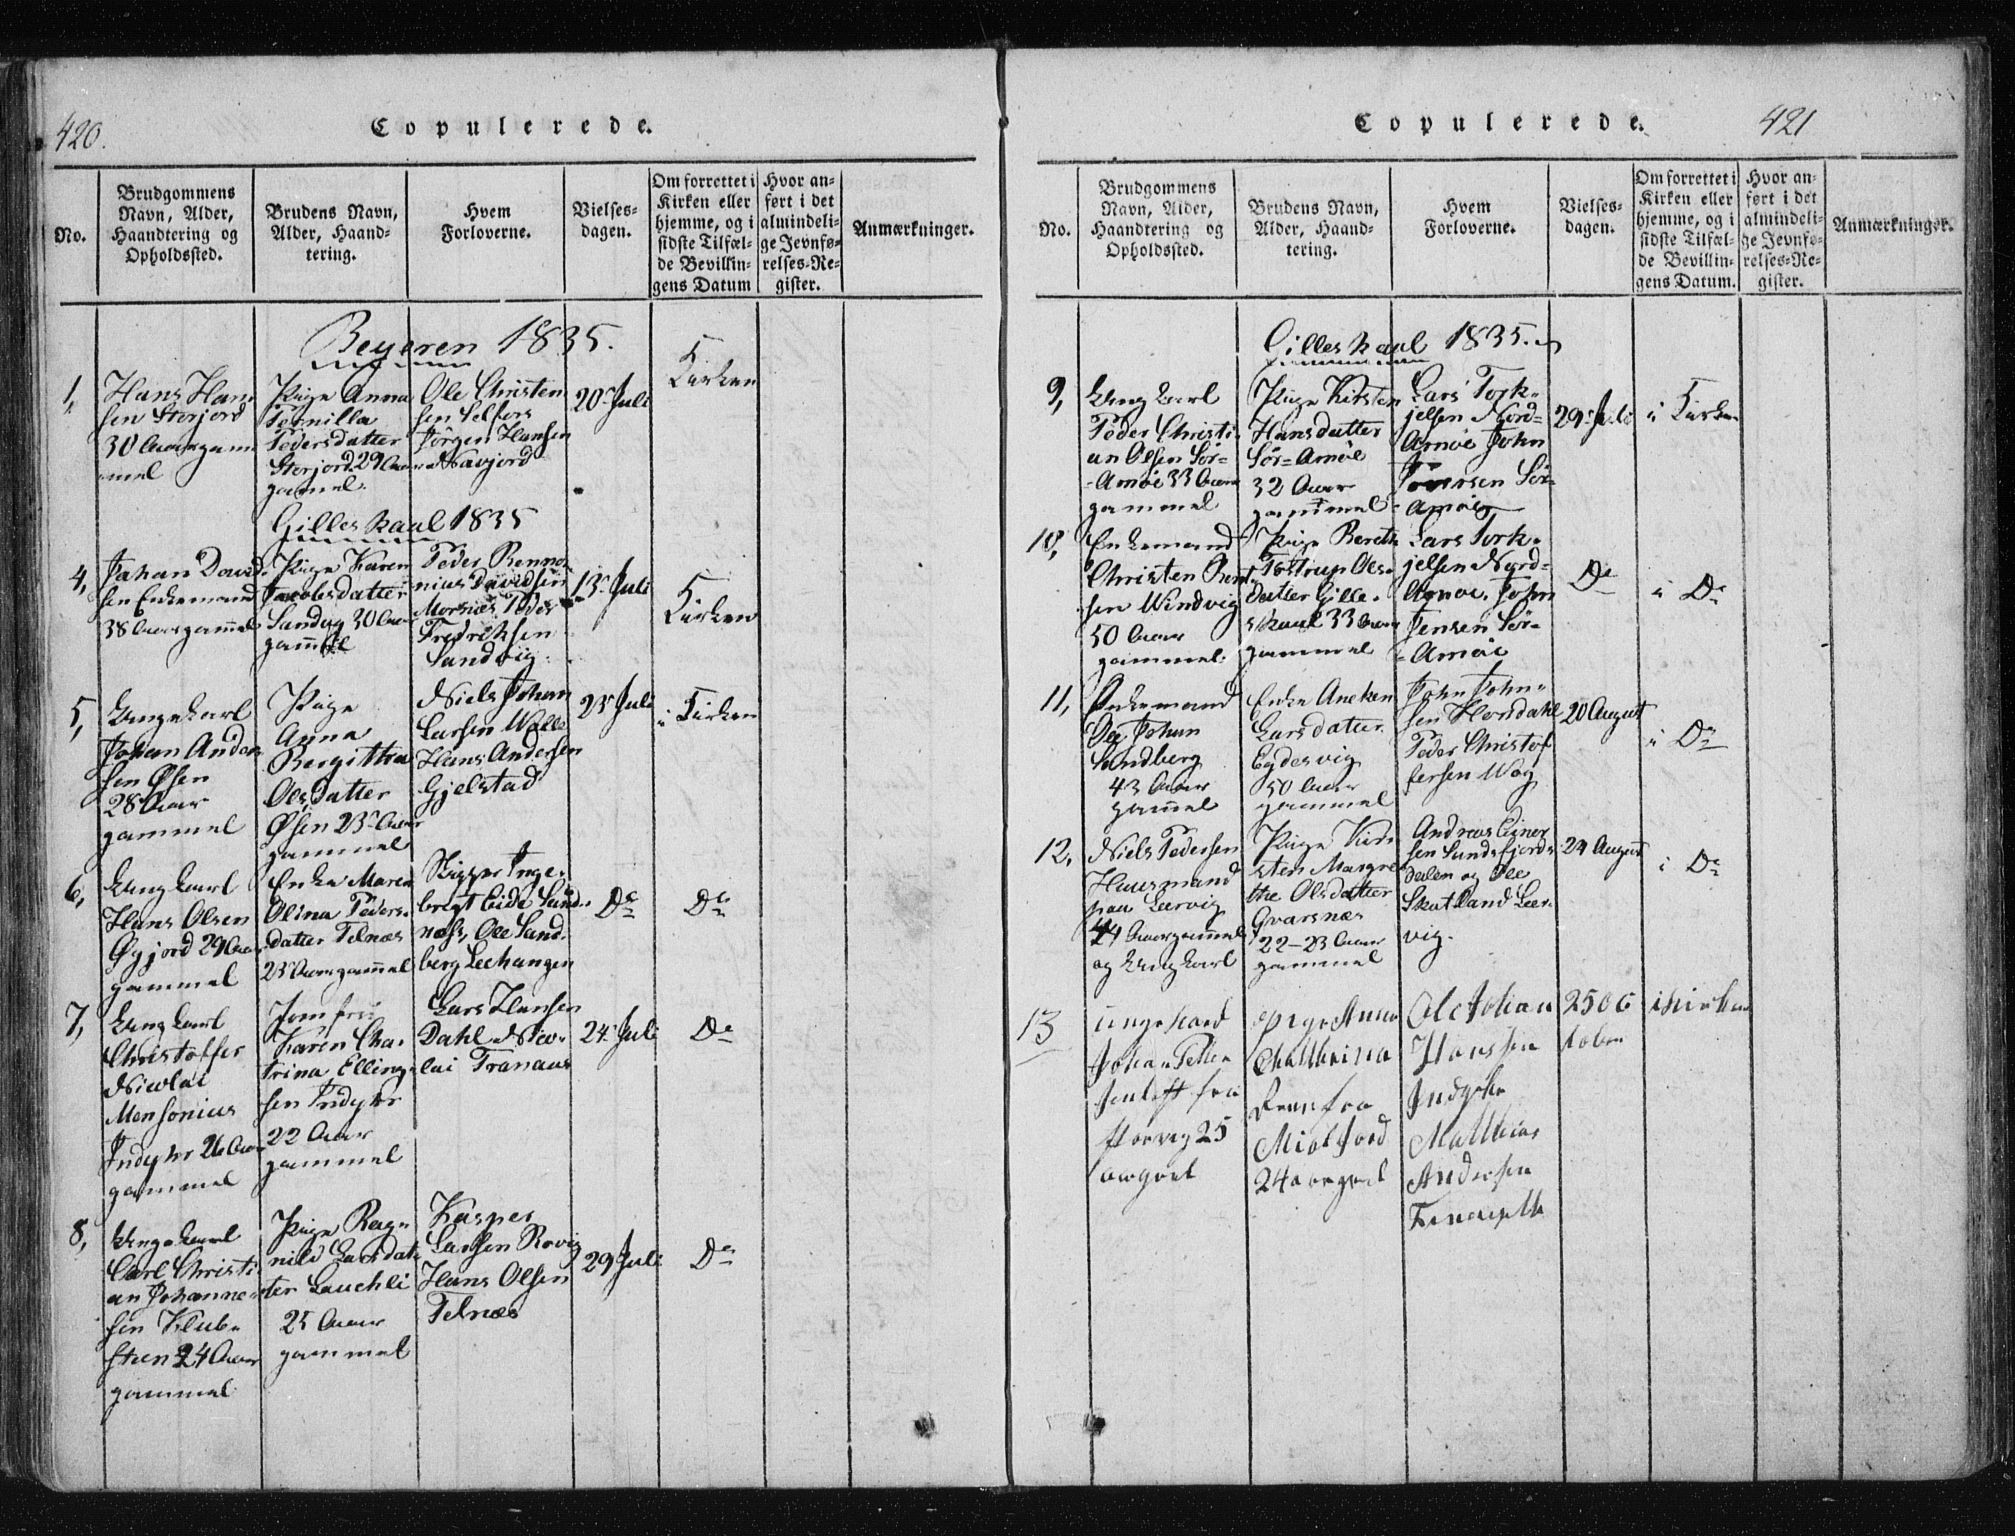 420.
Copulerede.
No.
Brudgommens
Navn, Alder,
Haandtering og
Opholdssted.
Brudens Navn,
Alder, Haand-
tering.
Hvem
Forloverne.
Vielses-
dagen.
Om forrettet i
Kirken eller
hjemme, og i
sidste Tilfæl-
de Bevillin-
gens Datum
Hvor an-
ført i det
almindeli-
ge Jevnfø-
relses-Re-
gister.
Anmærkninger.
Beyeren 1835.
1,
Hans Han
sen Storjord
30 Aars gam
mel
Pige Anna
Pernilla
Pedersdatter
Storjord 29 Aar
gamel.
Ole Christen
sen Selfors
Jörgen Hansen
Navjord
20 Juli
Kirken
Gilleskaal 1835
4,
Johan David
sen Enkemand
38 Aars gam̄el
Pige Karen
Jacobsdatter
Sandvig 30 Aar
gam̄el
Peder Benno
nius Davidsen
Morsnes Peder
Fredriksen
Sandvig
13 Juli
Kirken
5,
Ungekarl
Johan Ander
sen Øsen
28 Aar
gammel
Pige
Anna
Bergitha
Olsdatter
Øsen 23 Aar
gammel
Niels Johan
Larsen
Hans Andersen
Gjelstad
23 Juli
i Kirken
6,
Ungkarl
Hans Olsen
Øyjord 29 Aar
gammel
Enke Maren
Olina Peders
datter Telnæs
23 Aars gam̄el
Skipper Inge
brigt Eide Sund
næss, Ole Sand
berg Leehangen
Do
Do
7,
Ungkarl
Christoffer
Nicolai
Monsonius
Indyhr 26 Aar
gammel
Jomfru
Karen Cha
trina Elling
sen Indyhr
22 Aar
gammel
Lars Hansen
Dahl Nico
lai Tranaas
24 Juli
Do
8,
Ungekarl
Carl Christi
an Johanne
sen Klub
steen 24 Aar
gammel
Pige Rag
nild Larsdat
ter Lauchli
25 Aar
gammel
Kasper
Larsen Rovig
Hans Olsen
Telnæs
29 Juli
Do
Copulerede.
421
No.
Brudgommens
Navn, Alder,
Haandtering og
Opholdssted.
Brudens Navn,
Alder, Haand-
tering.
Hvem
Forloverne.
Vielses-
dagen.
Om forrettet i
Kirken eller
hjemme, og i
sidste Tilfæl-
de Bevillin-
gens Datum.
Hvor an-
ført i det
almindeli-
ge Jevnfø-
relses-Re-
gister.
Anmærkninger.
Gilleskaal 1835.
9,
Ung Karl
Peder Christi
an Olsen Sör=
Arnöe 33 Aar
gammel
Pige Kirsten
Hansdatter
Sör=Arnöe
32 Aar
gammel
Lars Tork
jelsen Nord=
Arnöe John
Iversen Sör
Arnöe
29 Juli
i Kirken
10,
Enkemand
Christen Bent
sen Windvig
50 Aar
gammel
Pige Bereth
Tostrup Ols
datter Gille
skaal 33 Aar
gammel
Lars Tork
jelsen Nord=
Arnöe. John
Jensen Sör=
Arnöe
Do
i Do
11,
Enkemand
Ole Johan
Sandberg
43 Aar
gam̄el
Enke Aneken
Larsdatter
Eydesvig
50 Aar
gammel
John John
sen Horsdahl
Peder Christof
fersen Wog
20 August
i Do
12,
Niels Pedersen
Huusmand
paa Leervig
44 Aar gam̄el
og Ungkarl
Pige Kir
sten Margre
the Olsdatter
Qvarsnæs
22-23 Aar
gammel
Andreas Einer
sen Sundsfjord
dalen og Ole
Skatland Leer
vig.
24 August
i Do
13
unge karl
Johan Petter
fra
25
aar
Pige Anna
Chathrina
fra
24 aar
Ole Johan
Hanssen
Indyhr
Mathias
Andersen
25 Oc
tober
i kirken